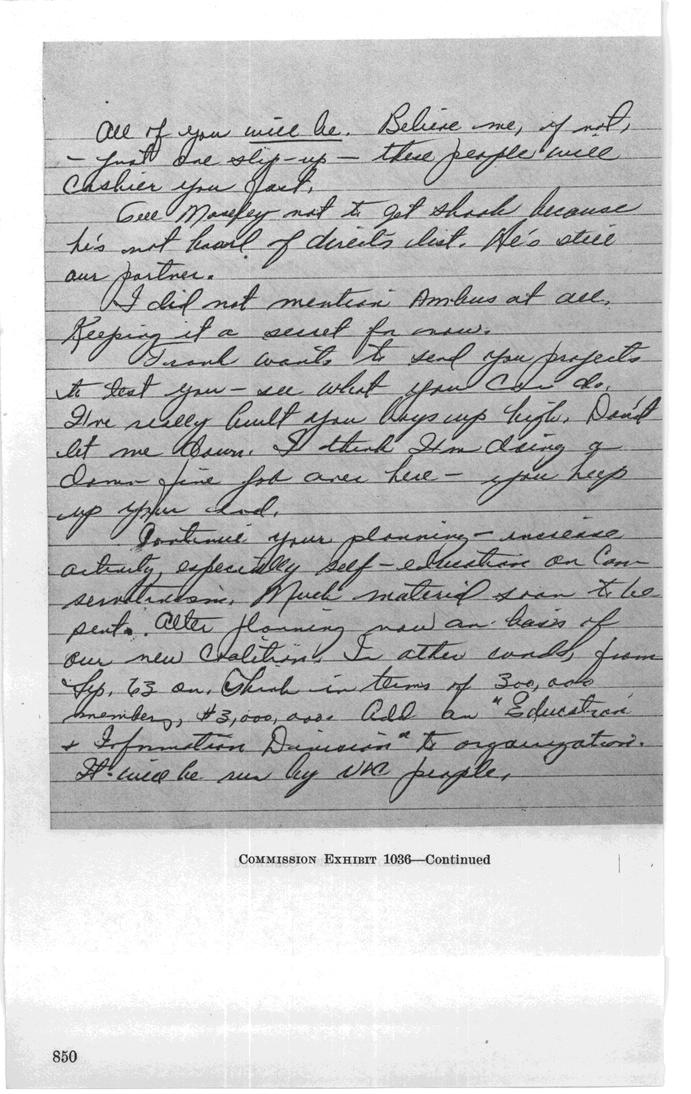 All of you will be. Believe me, if not,
- just one slip-up - these people will
cashier you fast.
Tell Moseley not to get shook because
he's not board of directs list. He's still
our partner.
I did not mention Ambus at all.
Keeping it a secret for now.
Frank wants to send you projects
to test you - see what you can do.
I've really built you boys up high. Don't
let me down. I think I'm doing a
damn fine job over here - you keep
up your end.
Continue your planning - increase
activity, especially self-education on Con-
servatism. Much material soon to be
sent. Alter planning now on basis of
our new coalition. In other words, from
Sep. 63 on. Think in terms of 300,000
members, $3,000,000. Add an "Education
& Information Division" to organization.
It will be run by people.
COMMISSION EXHIBIT 1036—Continued
850